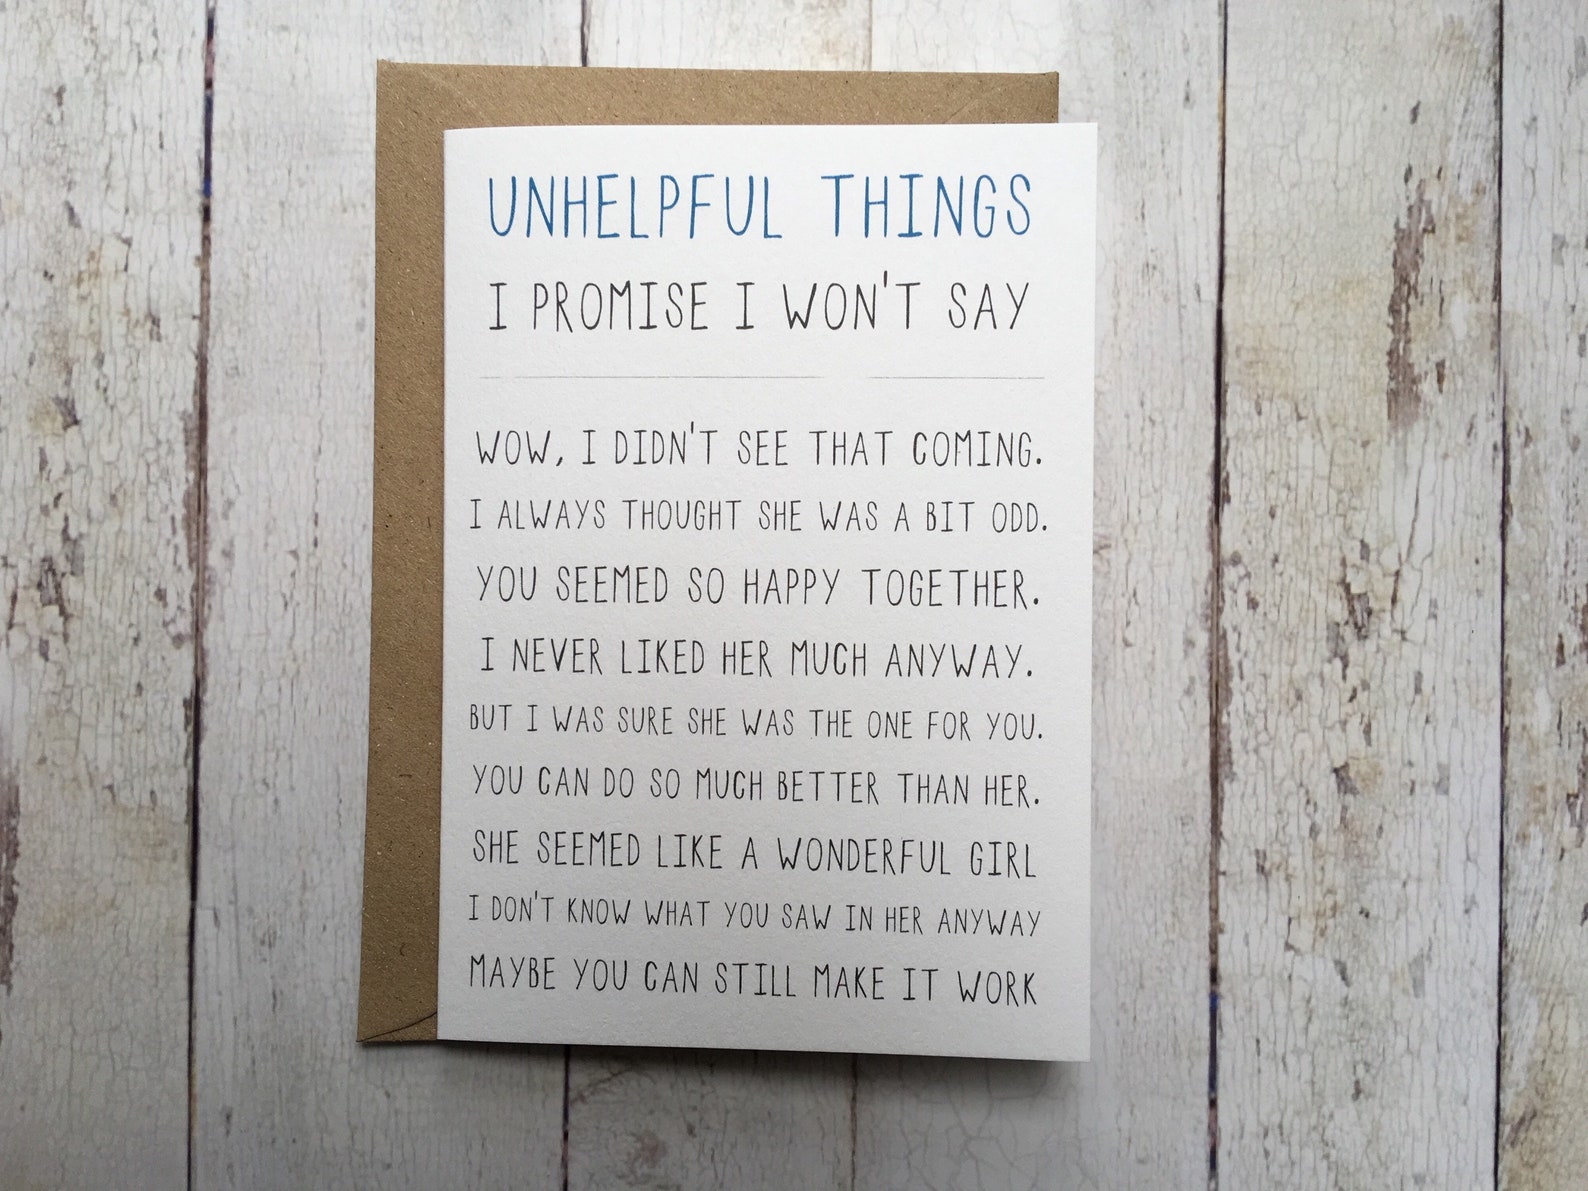 UNHELPFUL THINGS
I PROMISE I WON'T SAY
WOW, I DIDN'T SEE THAT COMING.
I ALWAYS THOUGHT SHE WAS A BIT ODD.
YOU SEEMED SO HAPPY TOGETHER.
I NEVER LIKED HER MUCH ANYWAY.
BUT I WAS SURE SHE WAS THE ONE FOR YOU.
YOU CAN DO SO MUCH BETTER THAN HER.
SHE SEEMED LIKE A WONDERFUL GIRL
I DON'T KNOW WHAT YOU SAW IN HER ANYWAY
MAYBE YOU CAN STILL MAKE IT WORK